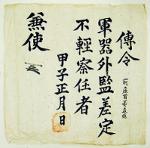 傳令
軍器外監差定
不輕察任者
甲子正月日
兼使